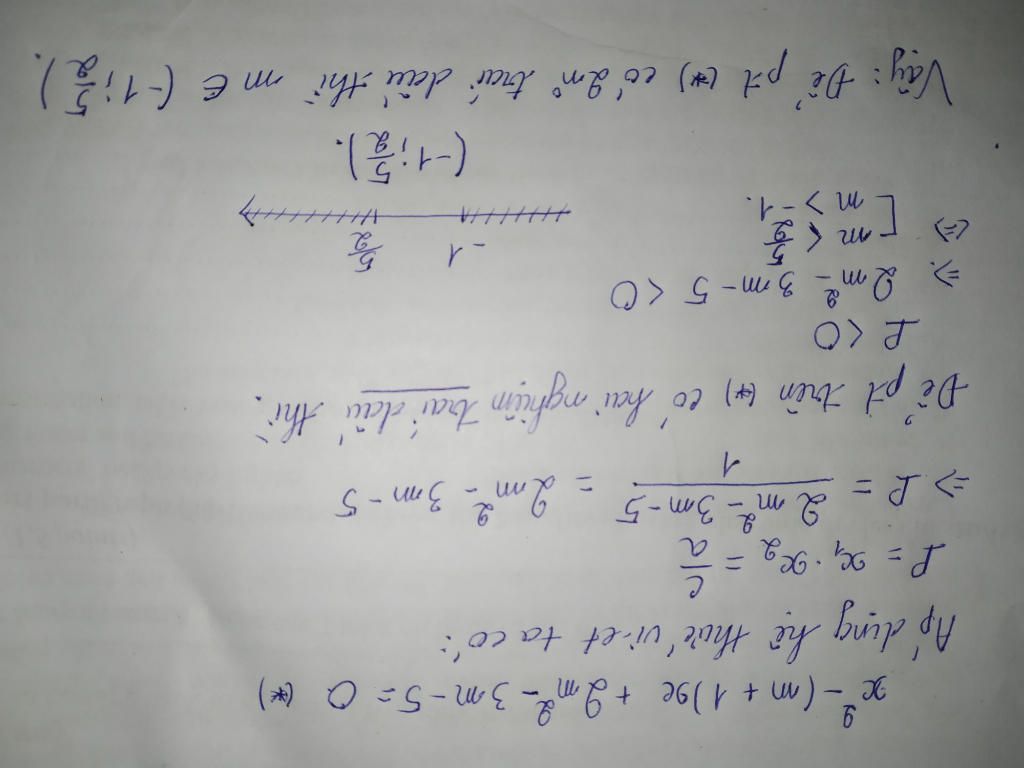 x² - (m + 1)x + 2m² - 3m - 5 = 0 (*)
Áp dụng hệ thức vi-et ta có:
P = x₁ . x₂ = c/a
=> P = (2m² - 3m - 5)/1 = 2m² - 3m - 5
Để pt trên (*) có hai nghiệm trái dấu thì:
P < 0
=> 2m² - 3m - 5 < 0
<=> [ m < 5/2
m > -1.
-1 5/2
(-1; 5/2).
Vậy: Để pt (*) có 2n° trái dấu thì m ∈ (-1; 5/2).